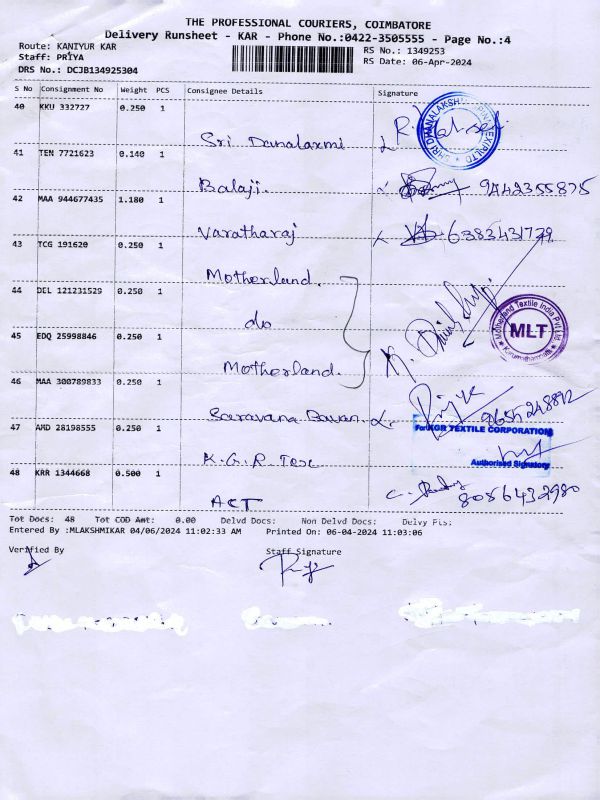 THE PROFESSIONAL COURIERS, COIMBATORE
Delivery Runsheet - KAR - Phone No.:0422-3505555 - Page No.:4
Route: KANIYUR KAR
RS No.: 1349253
Staff: PRIYA
RS Date: 06-Apr-2024
DRS No.: DCJB134925304
S No Consignment No Weight PCS Consignee Details Signature
40 KKU 332727 0.250 1
Sri Danalaxmi
SHRI DHANALAKSHMI
41 TEN 7721623 0.140 1
Balaji. 9442355875
42 MAA 944677435 1.180 1
Varatharaj 6383431779
43 TCG 191620 0.250 1
Motherland.
44 DEL 121231529 0.250 1
do
Motherland Textile India Pvt Ltd
MLT
Karumathampatti
45 EDQ 25998846 0.250 1
Motherland.
46 MAA 300789833 0.250 1
Saravana Bavan 9655248892
47 AMD 28198555 0.250 1
For KGR TEXTILE CORPORATION
Authorised Signatory
K.G.R Tex
48 KRR 1344668 0.500 1
ACT 8056432980
Tot Docs: 48 Tot COD Amt: 0.00 Delvd Docs: Non Delvd Docs: Delvy Pis:
Entered By :MLAKSHMIKAR 04/06/2024 11:02:33 AM Printed On: 06-04-2024 11:03:06
Verified By Staff Signature